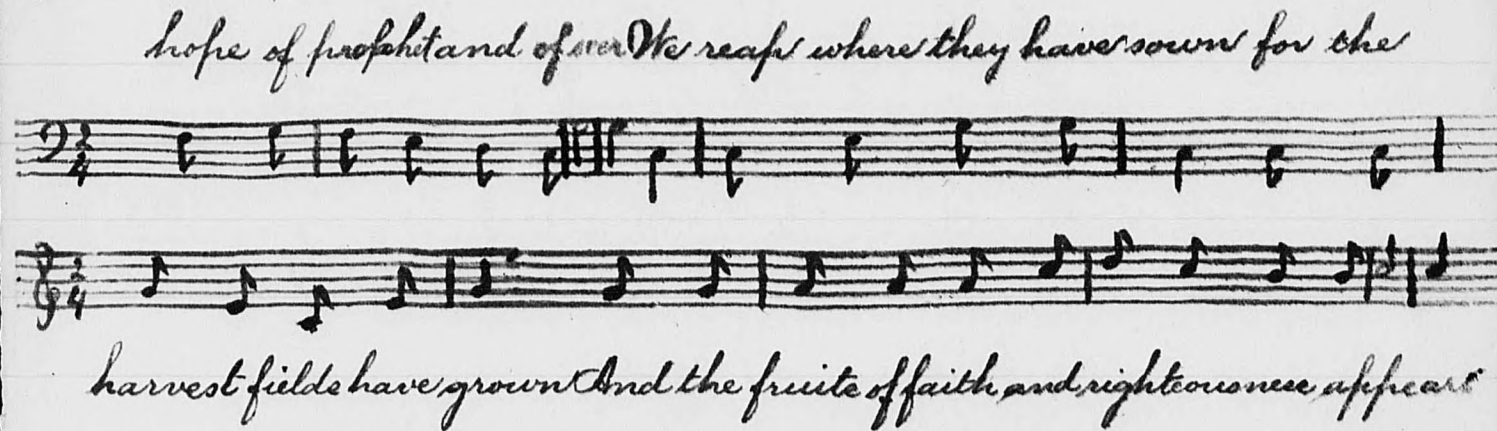 hope of prophet and of seer We reap where they have sown for the
2 4
2 4
harvest fields have grown And the fruits of faith and righteousness appear